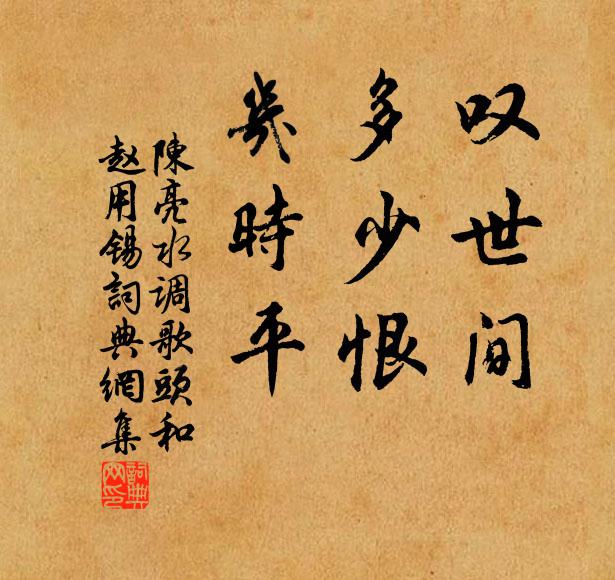 叹世间
多少恨
幾時平
陳亮水调歌頭和
赵用锡詞典網集
詞典网印